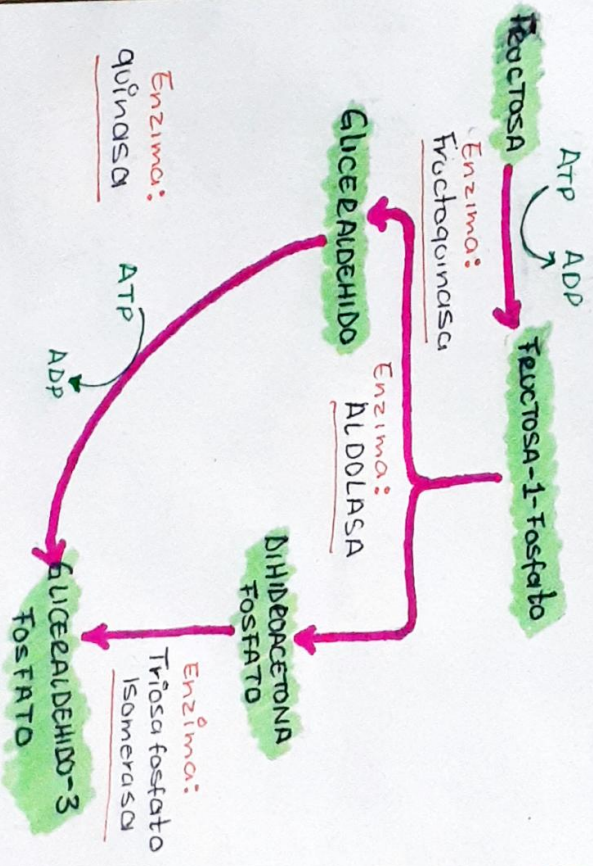 FRUCTOSA
ATP
ADP
FRUCTOSA-1-Fosfato
Enzima:
Fructoquinasa
Enzima:
ALDOLASA
GLICERALDEHIDO
DIHIDROACETONA
FOSFATO
Enzima:
quinasa
ATP
ADP
Enzima:
Triosafosfato
Isomerasa
GLICERALDEHIDO-3
FOSFATO